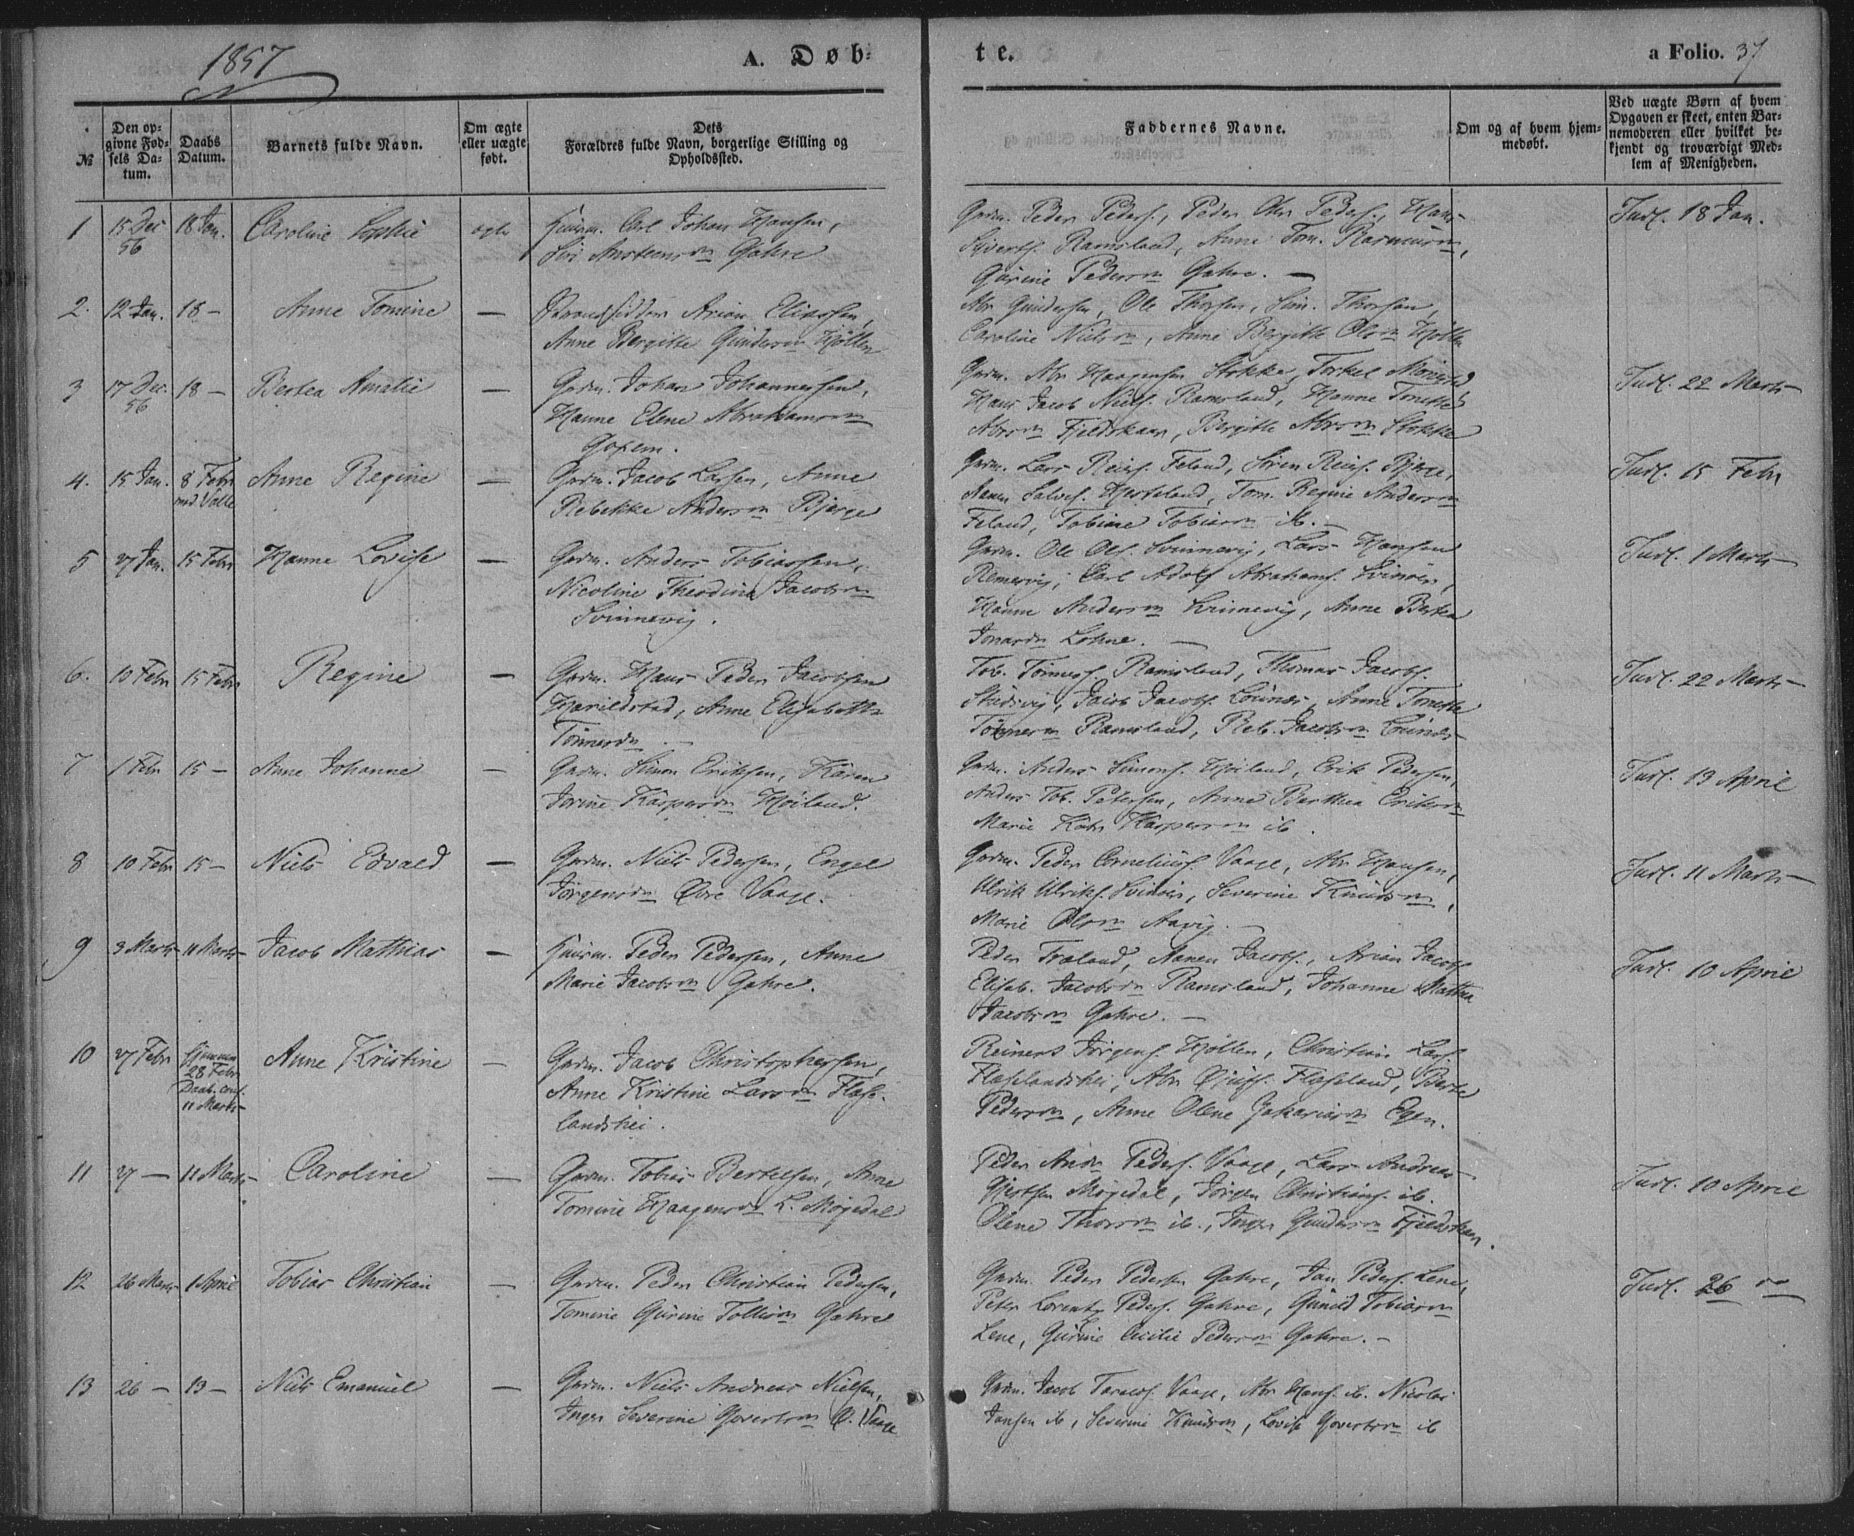 1857
A. Døb-
te.
a Folio. 37
№
Den op-
givne Fød-
sels Da-
tum.
Daabs
Datum.
Barnets fulde Navn.
Om ægte
eller uægte
født.
Dets
Forældres fulde Navn, borgerlige Stilling og
Opholdssted.
Faddernes Navne.
Om og af hvem hjem-
medøbt.
Ved uægte Børn af hvem
Opgaven er skeet, enten Bar-
nemoderen eller hvilket be-
kjendt og troværdigt Med-
lem af Menigheden.
1 15 Dec 56 18 Jan. Caroline Sophie ægte
Huusm. Carl Johan Hansen,
Siri Anstensdn Gahre
Gaardm. Peder Peders., Peder Chr. Peders., Hans
Syverts. Ramsland, Anne Tom. Rasmusdn,
Gurine Pedersdn Gahre. —
Indl. 18 Jan.
2. 12 Jan. 18 — Anne Tomine —
Strandsidder Arian Eliassen,
Anne Bergitte Gundersdn Høllen
Abr. Gundersen, Ole Thorsen, Sim. Thorsen,
Caroline Nielsdn, Anne Bergitte Olsdn Høllen
3 17 Dec. 56 18 — Bertea Amalie —
Grdm. Johan Johannessen,
Hanne Elene Abrahamsdn
Gopem.
Grdm. Abr. Haagensen Stokke, Torkel
Hans Jacob Niels. Ramsland, Hanne Tonette
Abrsdn Fjeldskaar, Bergitte Abrsdn Stokke
Indl. 22 Marts —
4. 15 Jan. 8 Febr. Anne Regine —
Grdm. Jacob Larsen, Anne
Rebekke Andersdn Bjerge
Grdm. Lars Reiers. Feland, Søren Reiers. Bjerge,
Aanen Salves. Tom. Regine Andersdn
Feland, Tobine Tobiasdn ib. —
Indl. 15 Febr
5 27 Jan. 15 Febr Hanne Lovise —
Grdm. Anders Tobiassen,
Nicoline Theodine Jacobsdn
Svinnevig.
Grdm. Ole Ols. Svinnevig, Lars Hansen
Remesvig, Carl Adolf Abrahams. Svinøer,
Hanne Andersdn Svinnevig, Anne Bertea
Jonasdn Lohne. —
Indl. 1 Marts —
6. 10 Febr 15 Febr Regine —
Grdm. Hans Peder Jacobsen
Harildstad, Anne Elisabeth
Tønnesdn —
Tob. Tønnes. Ramsland, Thomas Jacobs.
Studsvig, Jacob Jacobs. Lunde, Anne Tonette
Tønnesdn Ramsland, Reb. Jacobsdn Lunde
Indl. 22 Marts —
7 1 Febr 15 — Anne Johanne —
Grdm. Simon Eriksen, Karen
Jorine Kaspersdn Høiland.
Grdm. Anders Simons. Høiland, Erik Pedersen,
Anders Tob. Petersen, Anne Barthea Eriksdn
Marie Kath. Kaspersdn ib.
Indl. 13 April
8 10 Febr 15 — Niels Edvald —
Grdm. Niels Pedersen, Engel
Jørgensdn Øvre Vaage.
Grdm. Peder Cornelius. Vaage, Abr. Hansen,
Ulrik Ulriks. Svinøer, Severine Knudsdn,
Marie Olsdn Aavig. —
Indl. 11 Marts —
9 3 Marts 11 Marts Jacob Mathias —
Huusm. Peder Pedersen, Anne
Marie Jacobsdn Gahre.
Peder Fraland, Aanen Jacobs., Arian Jacobs.
Elisab. Jacobsdn Ramsland, Johanne Mathea
Jacobsdn Gahre. —
Indl. 10 April
10 27 Febr Hjemme 28 Febr Daab. conf. 11 Marts Anne Kristine —
Grdm. Jacob Christophersen,
Anne Kristine Larsdn Flase-
landshei.
Reiners Jørgens. Høllen, Christian Lars.
Flaselandshei, Abr. Flaseland, Berte
Pedersdn, Anne Olene Zakariasdn Egen.
11 27 — 11 Marts Caroline —
Grdm. Tobias Bertelsen, Anne
Tomine Haagensdn L. Møgedal
Peder Andr. Peders. Vaage, Lars Andreas
Gjertsen Møgedal, Jørgen Christians. ib.
Olene Thorsdn ib., Inger Gundersdn Fjeldskaar.
Indl. 10 April
12 26 Marts 1 April Tobias Christian —
Grdm. Peder Christian Pedersen,
Tomine Gurine Tollisdn Gahre
Grdm. Peder Pedersen Gahre, Jan Peders. Lene,
Peter Lorents Peders. Gahre, Gunild Tobiasdn
Lene, Gurine Cecilie Pedersdn Gahre. —
Indl. 26
13 26 — 13 — Niels Emanuel —
Grdm. Niels Andreas Nielsen,
Inger Severine Govertsdn Ø. Vaage
Grdm. Jacob Vaage, Abr. Hans. ib. Nicolai
Jansen ib, Severine Knudsdn, Lovise Govertsdn ib